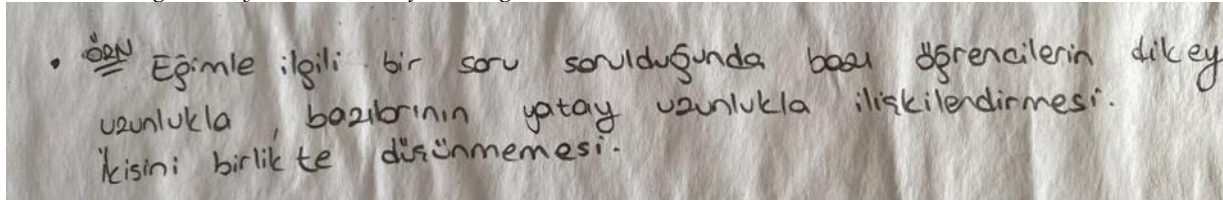 • ÖRN Eğimle ilgili bir soru sorulduğunda bazı öğrencilerin dikey
uzunlukla, bazılarının yatay uzunlukla ilişkilendirmesi.
İkisini birlikte düşünmemesi.